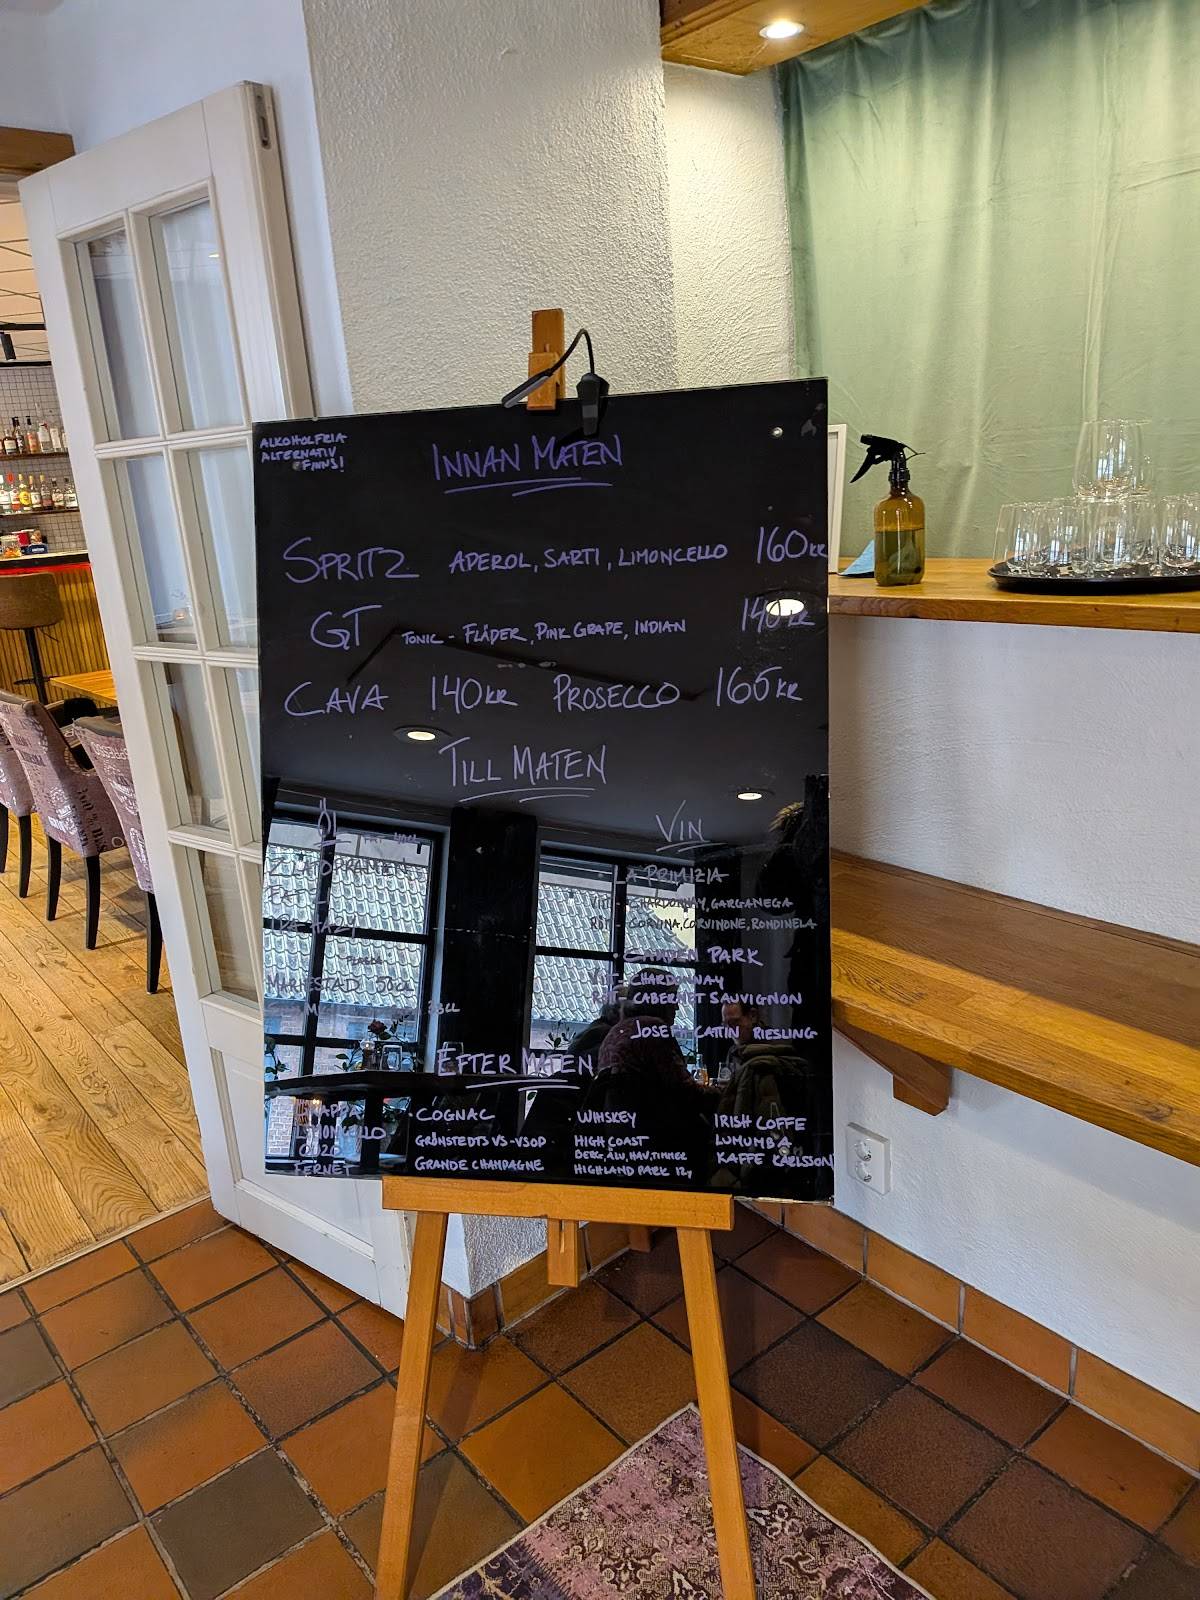 ALKOHOLFRIA
ALTERNATIV
FINNS!
INNAN MATEN
SPRITZ APEROL, SARTI, LIMONCELLO 160KR
GT TONIC - FLÄDER, PINK GRAPE, INDIAN 140KR
CAVA 140KR PROSECCO 165KR
TILL MATEN
ÖL FAT 40CL
FAT
IPA HAZY
FLASKA
MARIESTAD 50CL
33CL
VIN
LA PRIMIZIA
VITT - CHARDONNAY, GARGANEGA
RÖTT - CORVINA, CORVINONE, RONDINELA
· CAMDEN PARK
VITT - CHARDONNAY
RÖTT - CABERNET SAUVIGNON
· JOSEPH CATTIN RIESLING
EFTER MATEN
GRAPPA
LIMONCELLO
OUZO
FERNET
· COGNAC
GRÖNSTEDTS VS-VSOP
GRANDE CHAMPAGNE
· WHISKEY
HIGH COAST
BERG, ÄLV, HAV, TIMMER
HIGHLAND PARK 12Y
IRISH COFFE
LUMUMBA
KAFFE KARLSSON